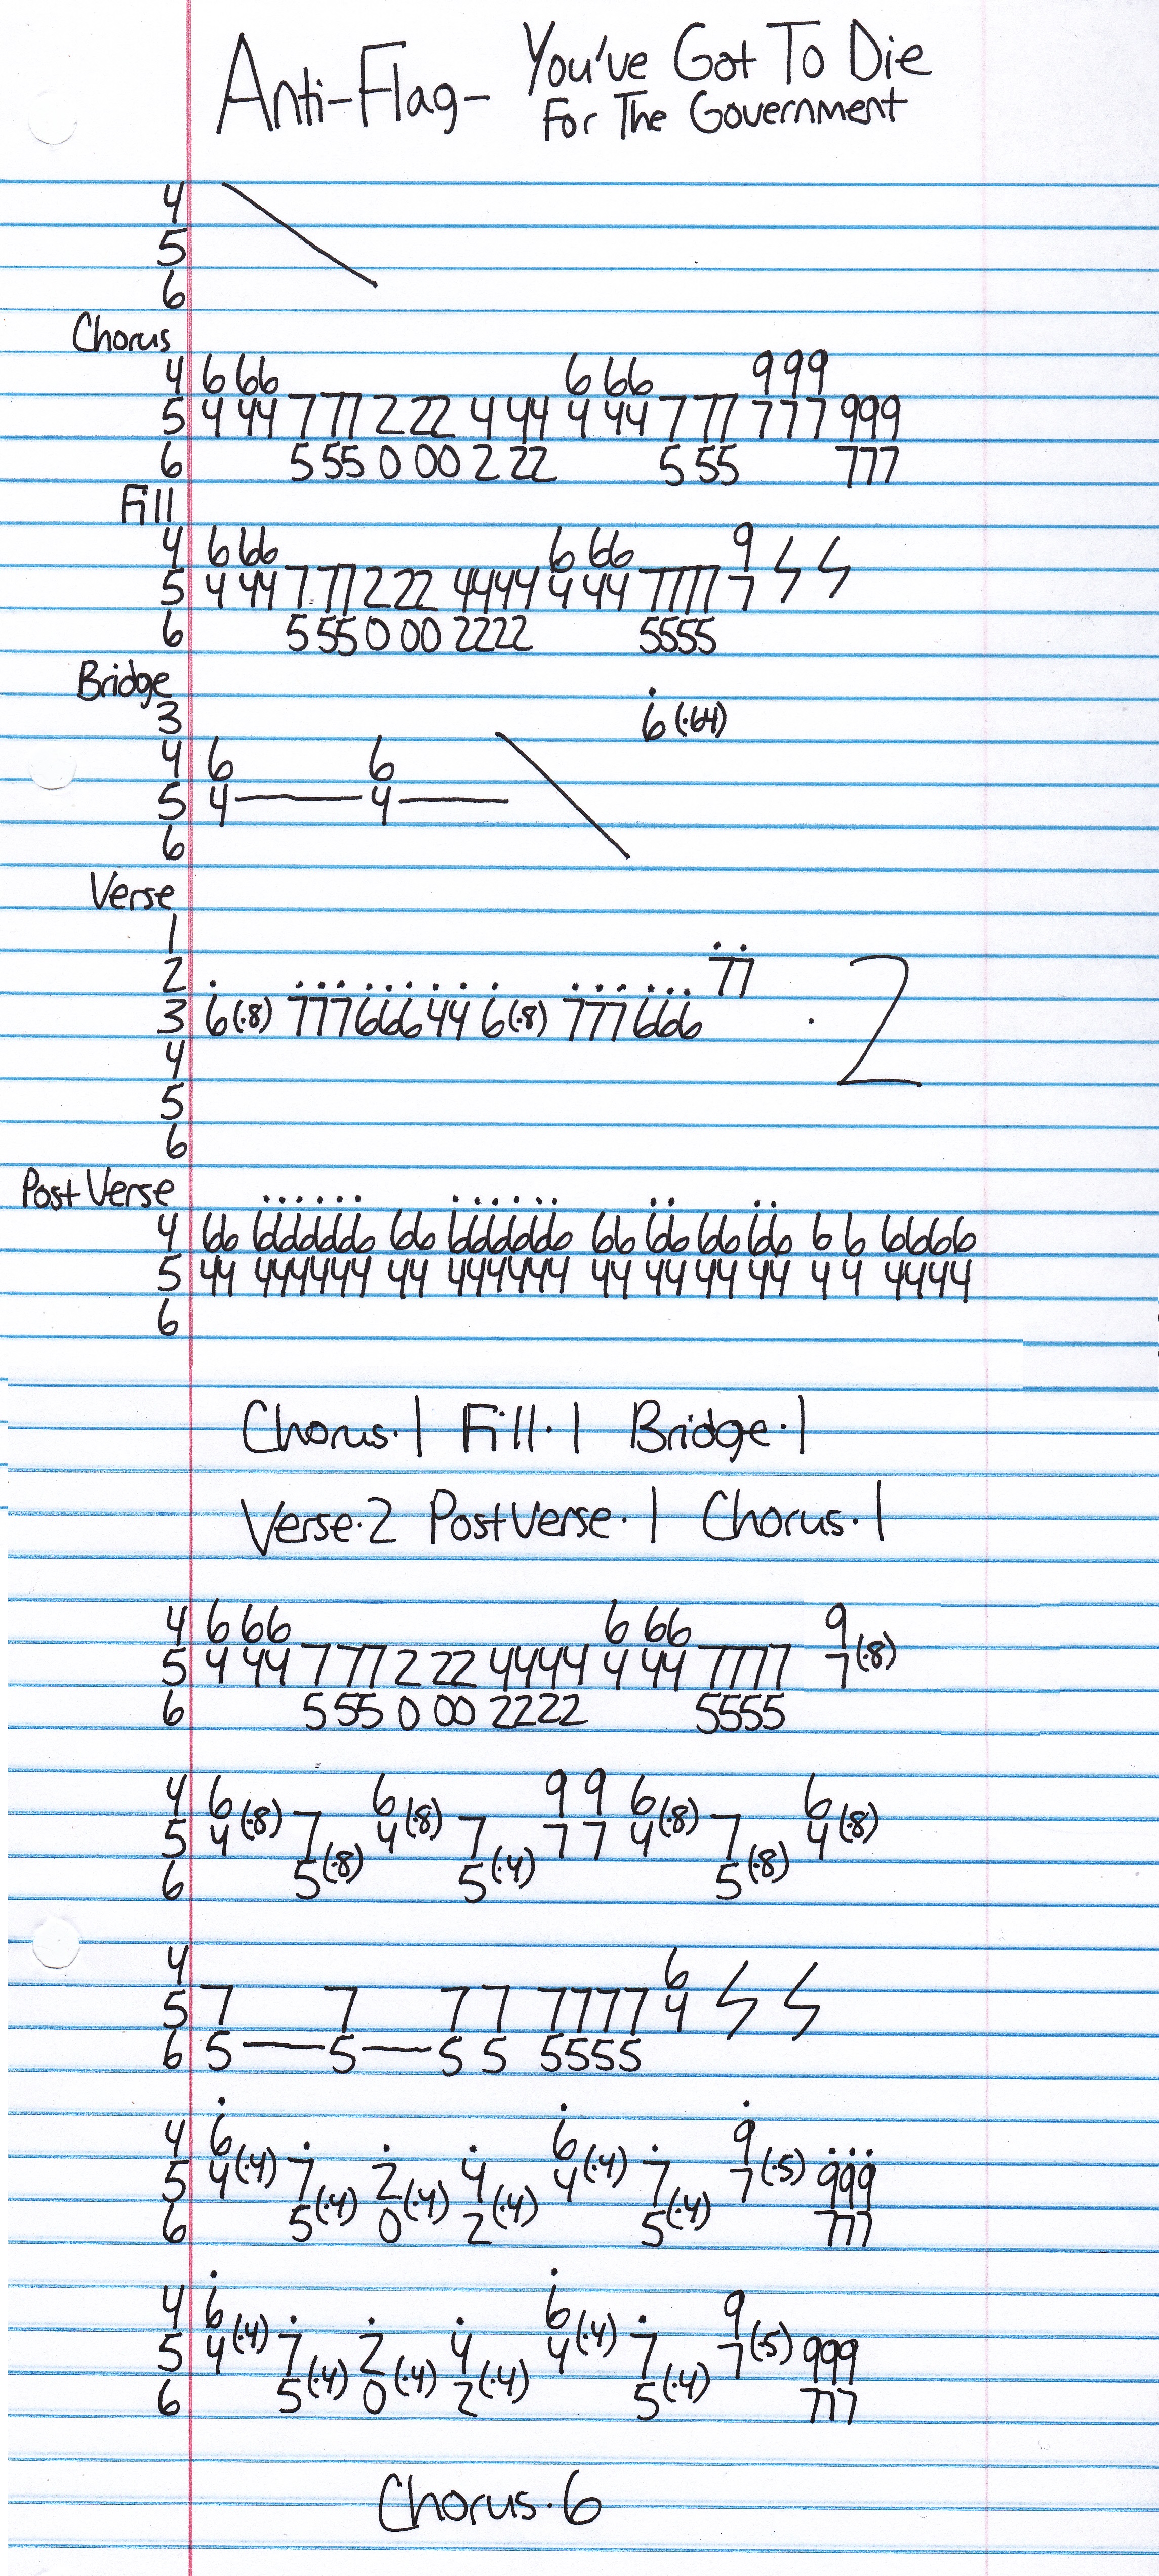 Anti-Flag- You've Got To Die
For The Government
4
5
6
Chorus
4 6 66 6 66 999
5 4 44 7 77 2 22 4 44 4 44 7 77 777 999
6 5 55 0 00 2 22 5 55 777
Fill
4 6 66 6 66 9
5 4 44 7 77 2 22 4444 4 44 7777 7
6 5 55 0 00 2222 5555
Bridge
3 6 (·64)
4 6 6
5 4 — 4 —
6
Verse
1
2 77
3 6(·8) 777666 44 6(·8) 777666 · 2
4
5
6
Post Verse
4 66 666666 66 666666 66 66 66 66 6 6 6666
5 44 444444 44 444444 44 44 44 44 4 4 4444
6
Chorus·1 Fill·1 Bridge·1
Verse·2 Post Verse·1 Chorus·1
4 6 66 6 66 9
5 4 44 7 77 2 22 4444 4 44 7777 7 (·8)
6 5 55 0 00 2222 5555
4 6 (·8) 6 (·8) 9 9 6 (·8) 6 (·8)
5 4 7 4 7 7 7 4 7 4
6 5 (·8) 5 (·4) 5 (·8)
4 6
5 7 7 7 7 7777 4
6 5 — 5 — 5 5 5555
4 6 6 9
5 4 (·4) 7 2 4 4 (·4) 7 7 (·5) 999
6 5 (·4) 0 (·4) 2 (·4) 5 (·4) 777
4 6 6 9
5 4 (·4) 7 2 4 4 (·4) 7 7 (·5) 999
6 5 (·4) 0 (·4) 2 (·4) 5 (·4) 777
Chorus·6